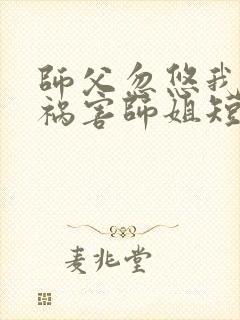 師父忽悠我
禍害師姐短
麦兆堂